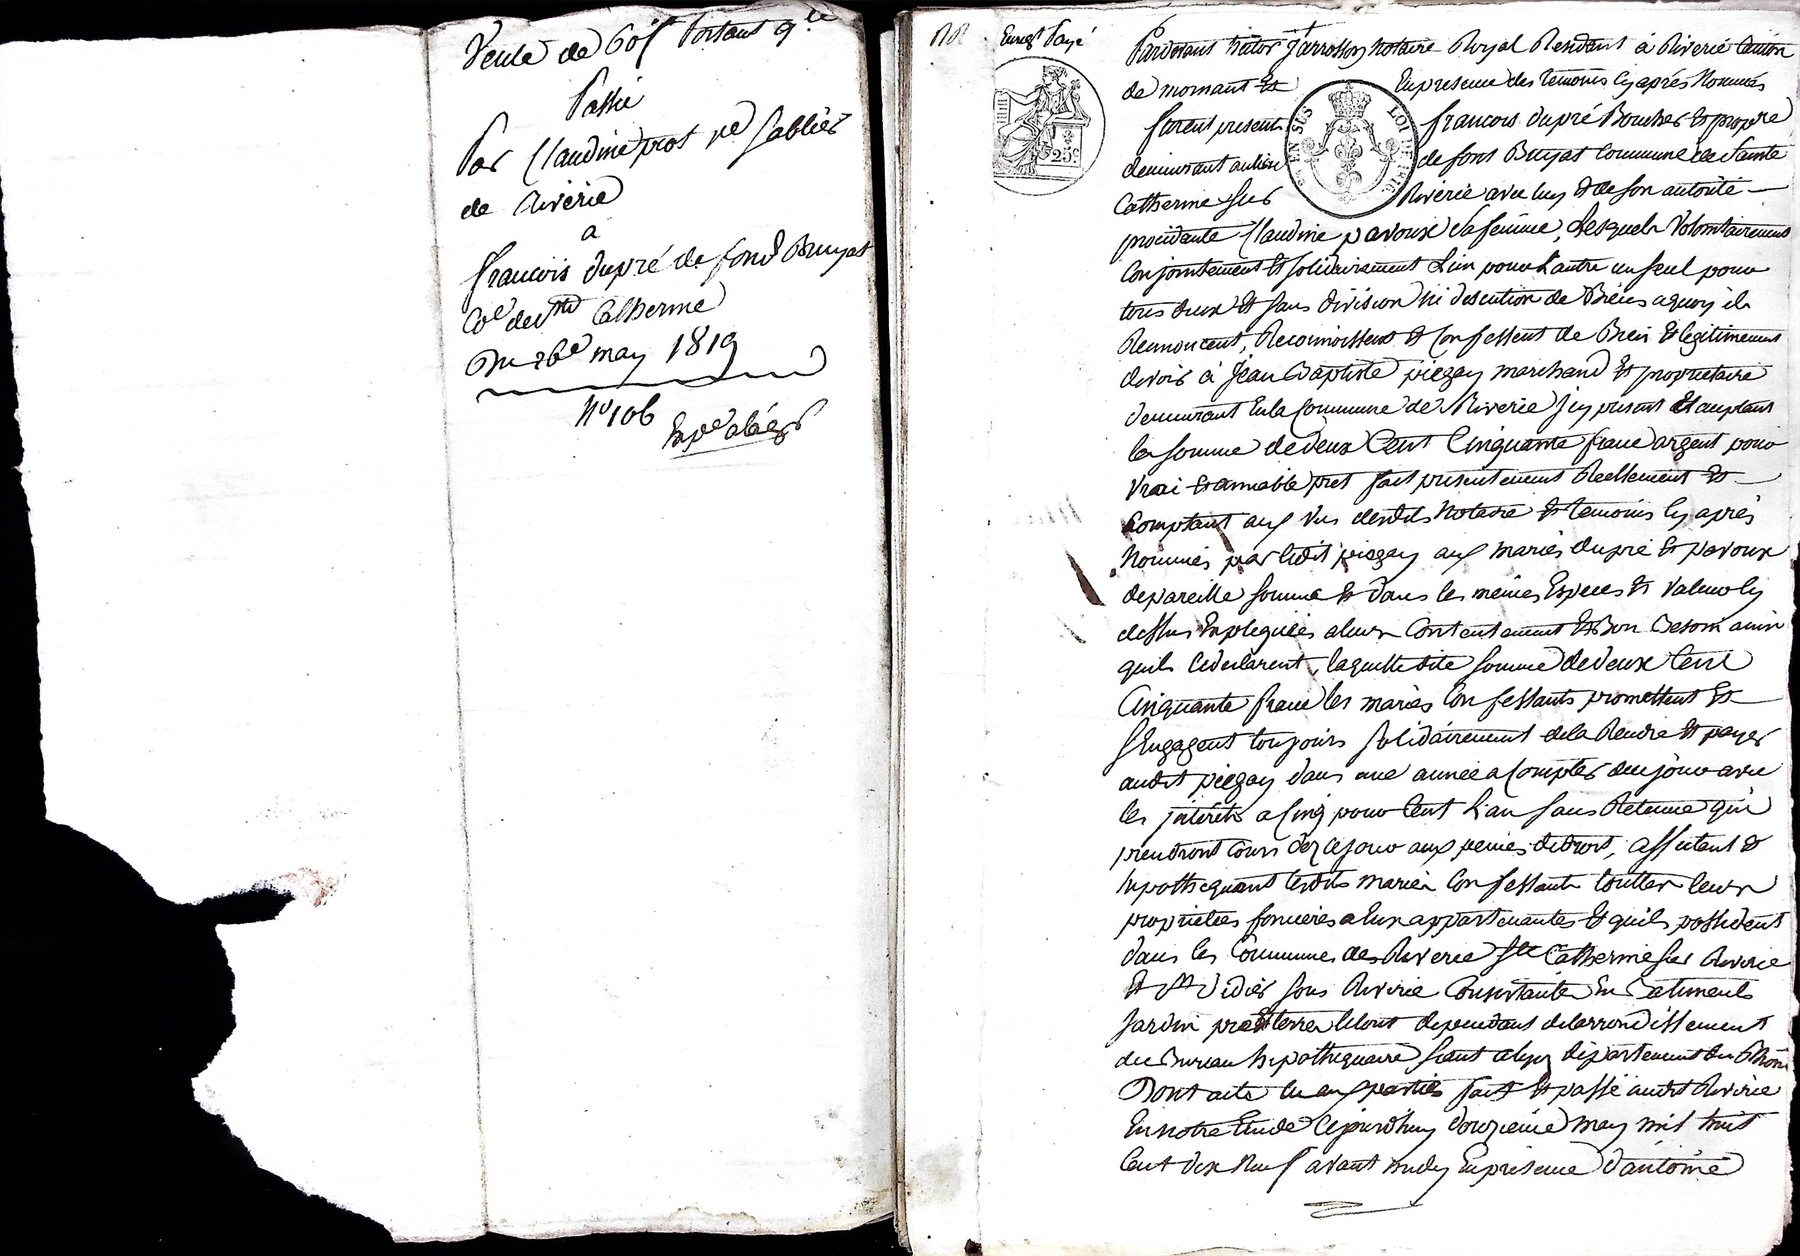 Vente de 60f portant q.ce
Passé
Par Claudine prost ve sablier
de Riverie
a
francois dupré de fond Bruyat
Coe de Ste Catherine
Du 26e may 1819
No 106
Expe aléger
Enregt Payé
25c
EN SUS
LOI DE 1816
Pardevant Jarrosson Notaire Royal Residant à Riverie Canton
de mornant Et En presence des temoins cy après Nommés
furent presents francois dupré Boucher Et propre
demeurant au lieu de font Bruyat Commune de Sainte
Catherine sur Riverie avec luy Et de son autorité
procédante Claudine pavoux sa femme, Lesquels Volontairement
Conjointement Et solidairement L'un pour L'autre un seul pour
tous deux Et sans division ni discution de Biens aquoy ils
Renoncent, Reconnoissent Et Confessent de Bien Et legitimement
devoir à Jean Baptiste piegay marchand Et proprietaire
demeurant En la Commune de Riverie Icy present Et aceptant
la somme de deux Cent Cinquante franc argent pour
Vrai Et amiable pret fait presentement Reellement Et
Comptant aux Vus desdits Notaire Et temoins Cy après
Nommés par ledit piegay aux mariés dupré Et pavoux
de pareille somme Et dans les mêmes Especes Et Valeur Cy
dessus Expliquées a leur Contentement Et Bon Besoin ainsi
quils Ledeclarent, laquelle dite somme de deux Cent
Cinquante franc les mariés Confessants promettent Et
s'Engagent toujours solidairement de la Rendre Et payer
audit piegay dans une année a Compter de ce jour avec
les jnterets a Cinq pour Cent L'an sans Retenue qui
prendront Cours dez ce jour aux peines de droit, affectent Et
hypothequant lesdits mariés Confessants touttes leurs
proprietées foncieres a Eux appartenantes Et quils possedent
dans les Communes des Riverie Ste Catherine sur Riverie
Et St Didier sous Riverie Consistante En Batiments
Jardin pred terres le tout dependant de larrondissement
du Bureau hypothequaire séant a lyon département du Rhône
Dont acte lu aux parties fait Et passé audit Riverie
En notre Etude Cejourdhuy douzieme may mil huit
Cent dix Neuf avant midy En presence d'antoine